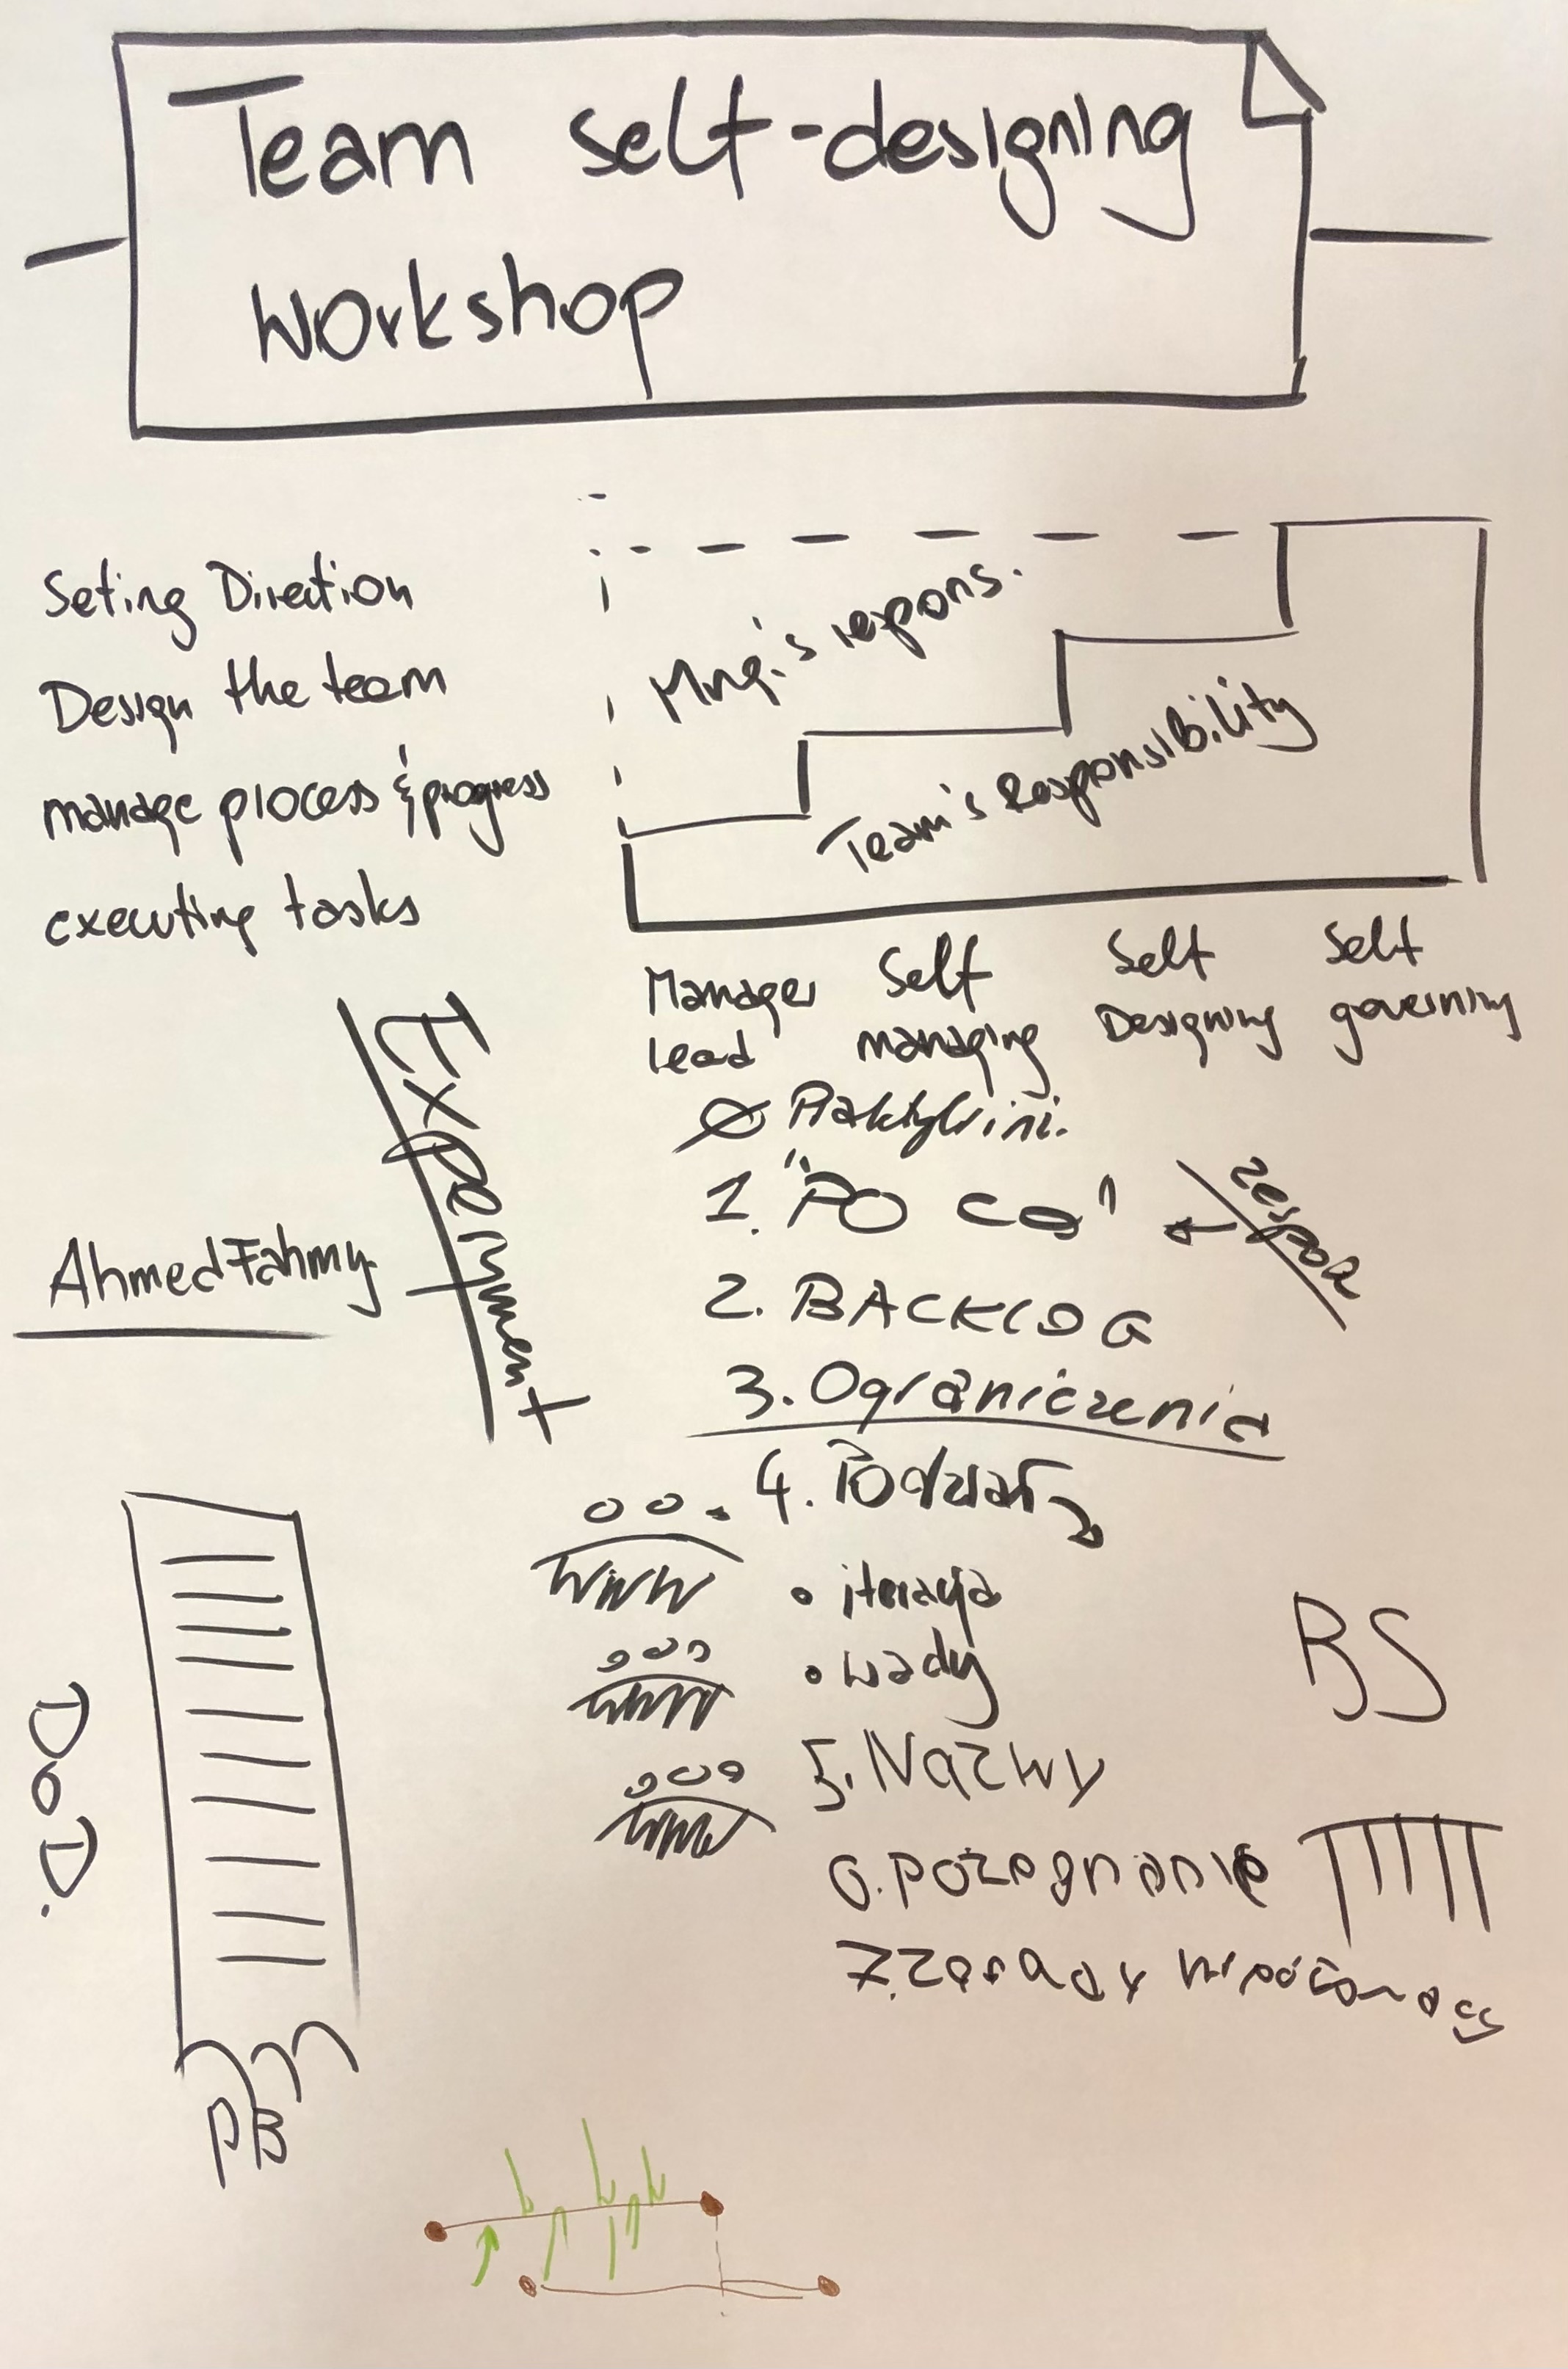 Team self-designing
workshop
Seting Direction
Design the team
manage process & progress
executing tasks
Mng.'s respons.
Team's Responsibility
Manager
lead
Self
managing
Self
Designing
Self
governing
Experiment
Ahmed Fahmy
1. "PO CO"
zespoł
2. BACKLOG
3. Ograniczenia
4. Podział
• iteracja
• wady
5. Nazwy
6. pożegnanie
7. zasady
BS
DoD.
PB